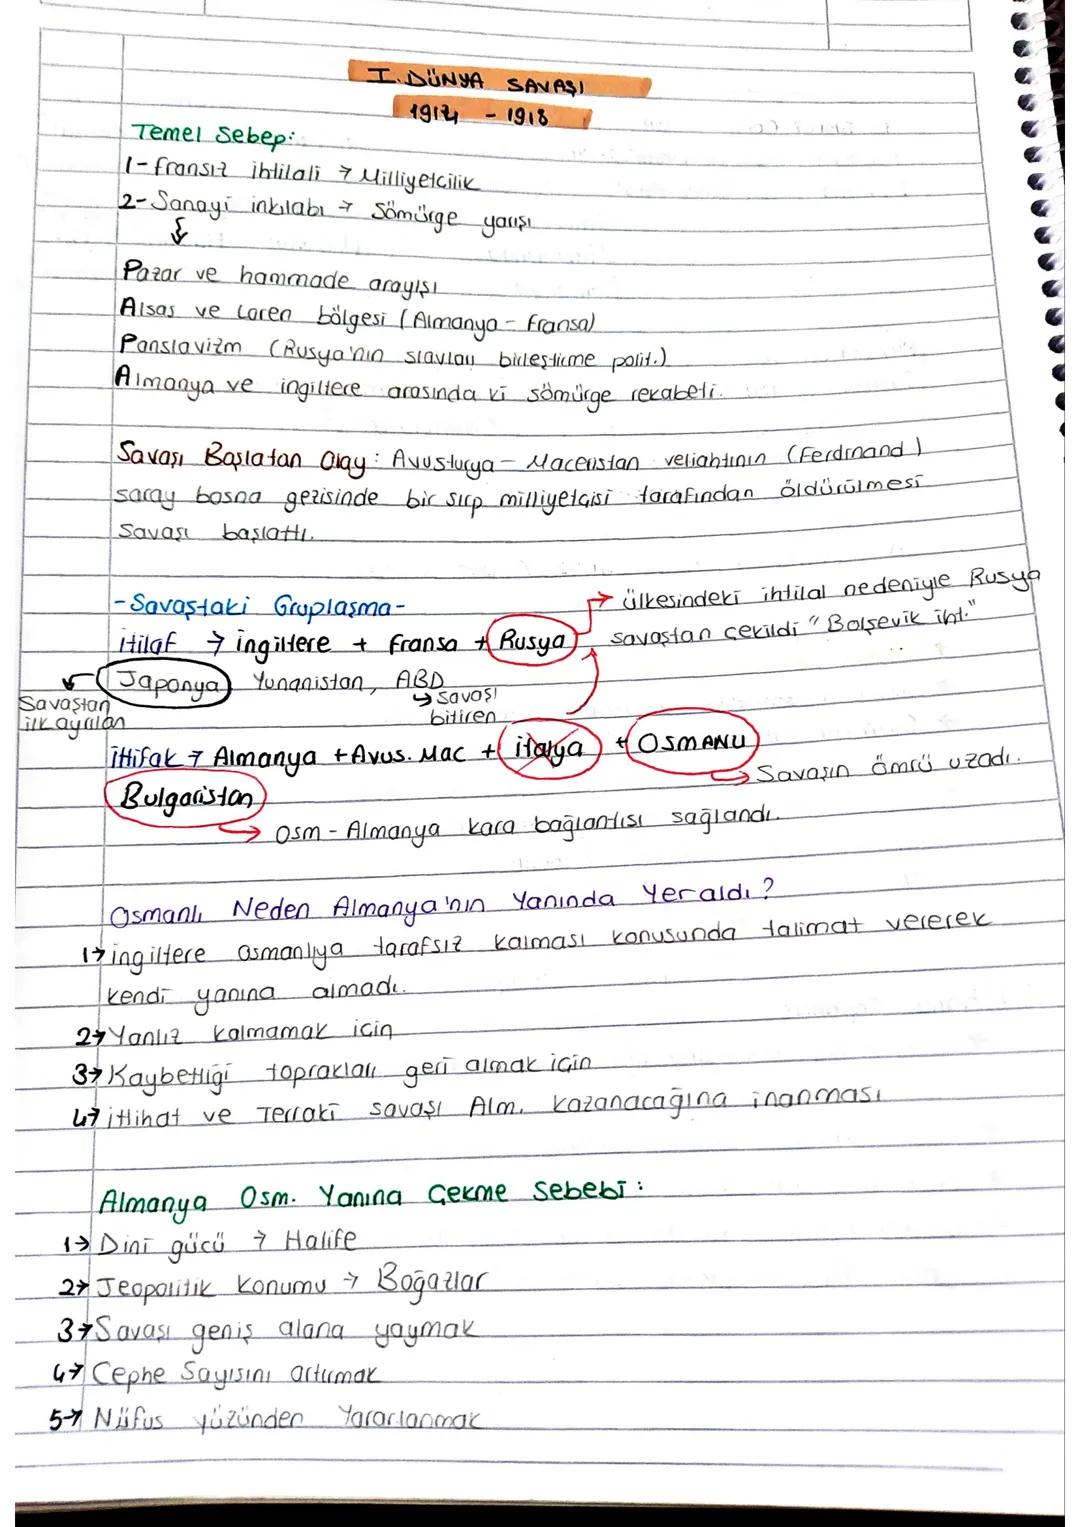 I. DÜNYA SAVAŞI
1914 - 1918
Temel Sebep:
1- fransız ihtilali → Milliyetcilik
2- Sanayi inkılabı → Sömürge yarışı
↓
Pazar ve hammade arayışı
Alsas ve Loren bölgesi (Almanya - fransa)
Panslavizm (Rusya'nın slavları birleştirme polit.)
Almanya ve ingiltere arasında ki sömürge rekabeti.
Savaşı Başlatan Olay: Avusturya - Macaristan veliahtının (Ferdinand)
saray bosna gezisinde bir sırp milliyetçisi tarafından öldürülmesi
savaşı başlattı.
-Savaştaki Gruplaşma-
itilaf → ingiltere + fransa + Rusya
→ ülkesindeki ihtilal nedeniyle Rusya
savaştan çekildi "Bolşevik iht."
Japonya Yunanistan, ABD
Savaştan
ilk ayrılan
→ savaşı
bitiren
ittifak → Almanya + Avus. Mac + italya + OSMANLI
→ Savaşın ömrü uzadı.
Bulgaristan
→ Osm - Almanya kara bağlantısı sağlandı.
Osmanlı Neden Almanya'nın Yanında Yer aldı?
1→ ingiltere osmanlıya tarafsız kalması konusunda talimat vererek
kendi yanına almadı.
2→ Yanlız kalmamak için
3→ Kaybettiği toprakları geri almak için
4→ ittihat ve Terraki savaşı Alm. kazanacağına inanması
Almanya Osm. Yanına Çekme Sebebi:
1→ Dini gücü → Halife
2→ Jeopolitik Konumu → Boğazlar
3→ Savaşı geniş alana yaymak
4→ Cephe Sayısını artırmak
5→ Nüfus yüzünden Yararlanmak